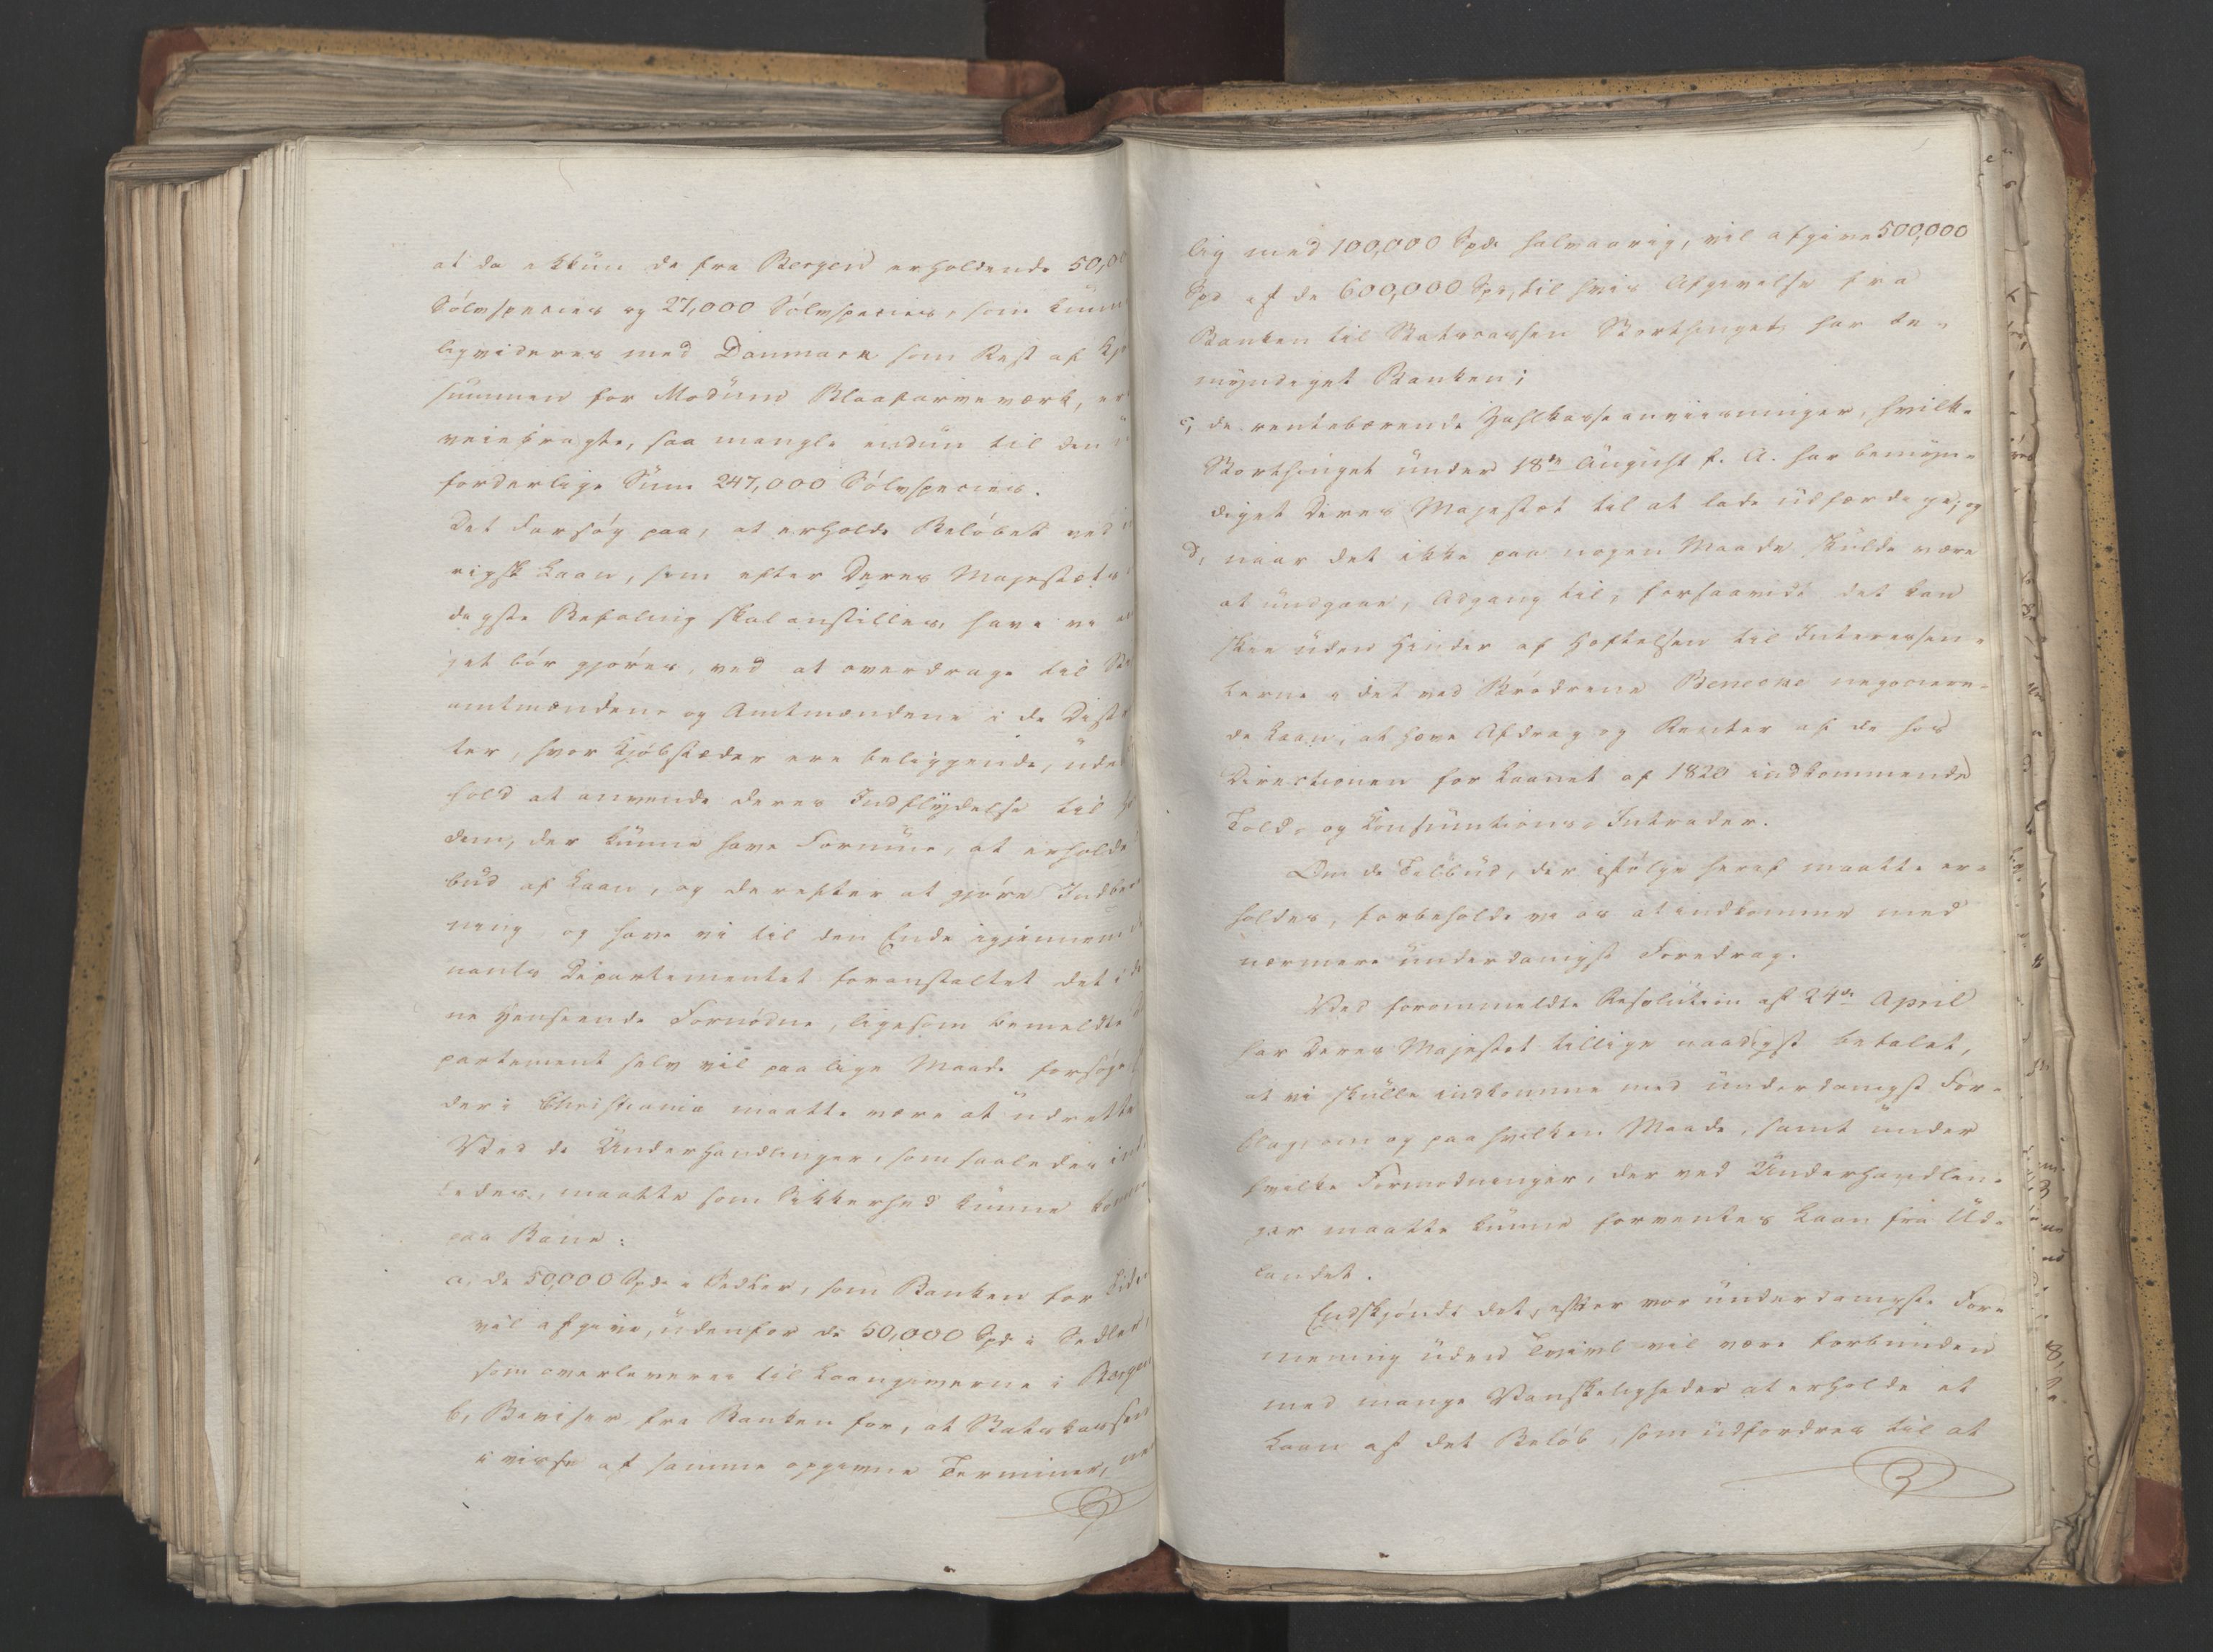 at da ikkun de fra Bergen erholdende 50,00
Sölvspecies og 27,000 Sölvspecies, som kunne
liqvideres med Danmark som Rest af Kjø
summen for Modum Blaafarveværk, er
veiebragte, saa mangle endnu til den
forderlige Sum 247,000 Sölvspecies.
Det Forsøg paa, at erholde Beløbet ved
rigsk Laan, som efter Deres Majestæts
digste Befaling skal anstilles, have vi
get bør gjøres, ved at overdrage til St
amtmændene og Amtmændene i de Distr
ter, hvor Kjøbstæder ere beliggende, uden
hold at anvende deres Indflydelse til
dem, der kunne have Formue, at erholde
bud af Laan, og derefter at gjøre Indber
ning, og have vi til den Ende igjennem
nants Departementet foranstaltet det i
ne Henseende Fornødne, ligesom bemeldte
partement selv vil paa lige Maade forsøge
der i Christiania maatte være at udrette
Ved de Underhandlinger, som saaledes ind
ledes, maatte som Sikkerhed kunne komme
paa Bane:
a, de 50,000 Spd. i Sedler, som Banken for Tiden
vil afgive, udenfor de 50,000 Spd. i Sedler,
som overleveres til Laangiverne i Bergen
b, Beviser fra Banken for, at Statskassen
i visse af samme opgivne Terminer,
lig med 100,000 Spd. halvaarig, vil afgive 500,000
Spd. af de 600,000 Spd., til hvis Afgivelse fra
Banken til Statscassen Storthinget har be-
myndiget Banken;
c, de rentebærende Zahlkasseanviisninger, hvilke
Storthinget under 18de August f. A. har bemyn-
diget Deres Majestæt til at lade udfærdige; og
d, naar det ikke paa nogen Maade skulde være
at undgaae, Adgang til, forsaavidt det kan
skee uden Hinder af Heftelsen til Interessen-
terne i det ved Brødrene Benecke negociere-
de Laan, at hæve Afdrag og Renter af de hos
Directionen for Laanet af 1820 indkommende
Told- og Consumtions-Intrader.
Om de Tilbud, der ifølge heraf maatte er-
holdes, forbeholde vi os at indkomme med
nærmere underdanigst Foredrag.
Ved forommeldte Resolution af 24de April
har Deres Majestæt tillige naadigst befalet,
at vi skulle indkomme med underdanigst For-
slag, om og paa hvilken Maade, samt under
hvilke Formodninger, der ved Underhandlin-
ger maatte kunne forventes Laan fra Ud-
landet.
Endskjøndt det, efter vor underdanigste For-
mening uden Tvivl vil være forbunden
med mange Vanskeligheder at erholde et
Laan af det Beløb, som udfordres til at